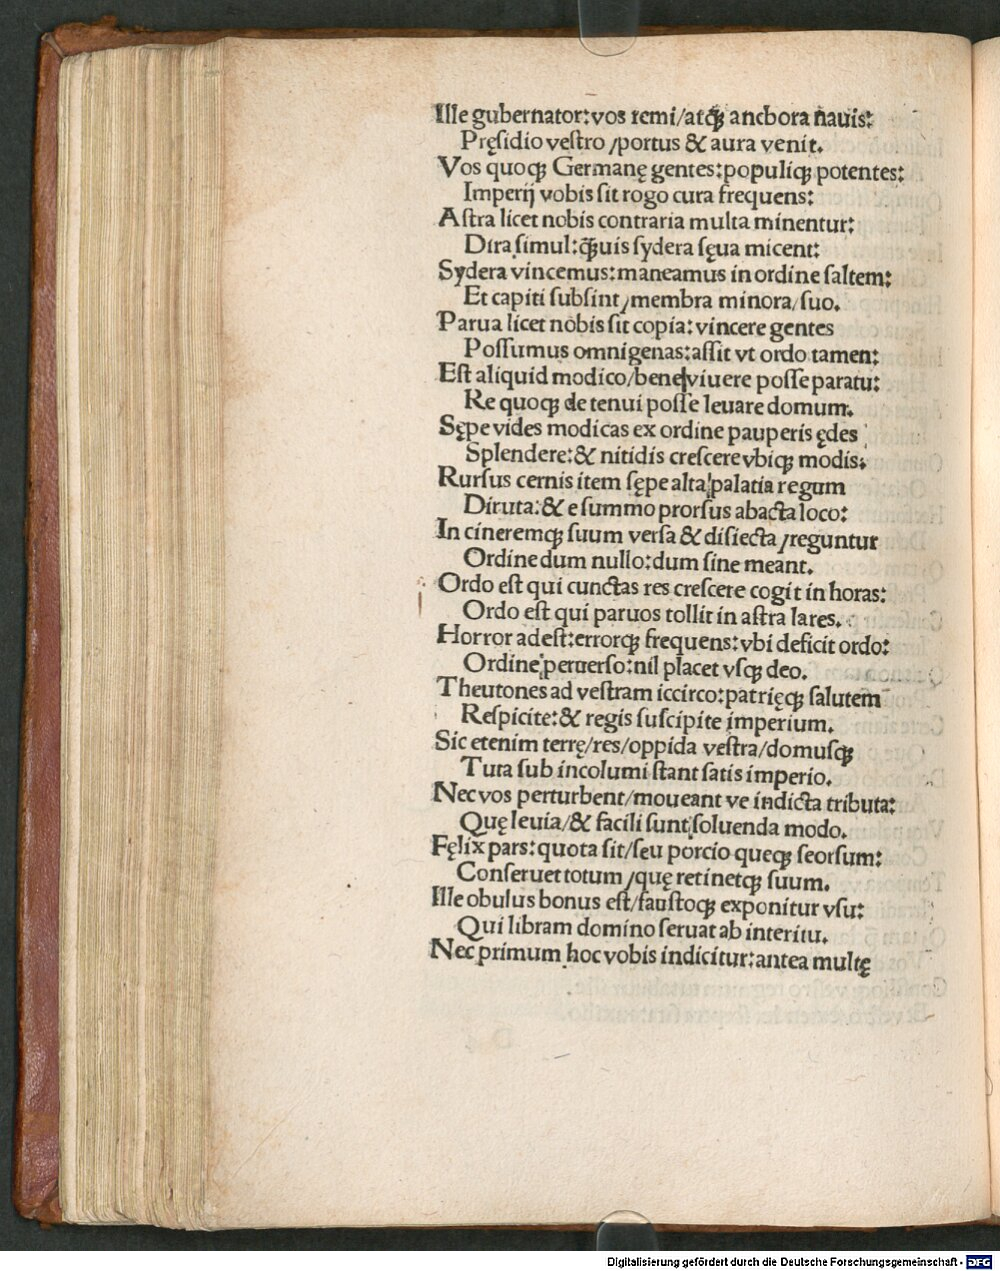 Ille gubernator:vos remi/atqꝫ anchora nauis:
Pręsidio vestro /portus & aura venit.
Vos quoqꝫ Germanę gentes:populiqꝫ potentes:
Imperij vobis sit rogo cura frequens:
Astra licet nobis contraria multa minentur:
Dira simul:ꝙ̃uis sydera sęua micent:
Sydera vincemus:maneamus in ordine saltem:
Et capiti subsint /membra minora/suo.
Parua licet nobis sit copia:vincere gentes
Possumus omnigenas:assit vt ordo tamen:
Est aliquid modico/bene viuere posse paratu:
Re quoqꝫ de tenui posse leuare domum.
Sępe vides modicas ex ordine pauperis ędes
Splendere:& nitidis crescere vbiqꝫ modis.
Rursus cernis item sępe alta palatia regum
Diruta:& e summo prorsus abacta loco:
In cineremqꝫ suum versa & disiecta /reguntur
Ordine dum nullo:dum sine meant.
Ordo est qui cunctas res crescere cogit in horas:
Ordo est qui paruos tollit in astra lares.
Horror adest:errorqꝫ frequens:vbi deficit ordo:
Ordine peruerso:nil placet vsqꝫ deo.
Theutones ad vestram iccirco:patrięqꝫ salutem
Respicite:& regis suscipite imperium.
Sic etenim terrę/res/oppida vestra/domusqꝫ
Tuta sub incolumi stant satis imperio.
Nec vos perturbent/moueant ve indicta tributa:
Quę leuia/& facili sunt soluenda modo.
Fęlix pars:quota sit/seu porcio queqꝫ seorsum:
Conseruet totum /quę retinetqꝫ suum.
Ille obulus bonus est/faustoqꝫ exponitur vsu:
Qui libram domino seruat ab interitu.
Nec primum hoc vobis indicitur:antea multę
Digitalisierung gefördert durch die Deutsche Forschungsgemeinschaft - DFG